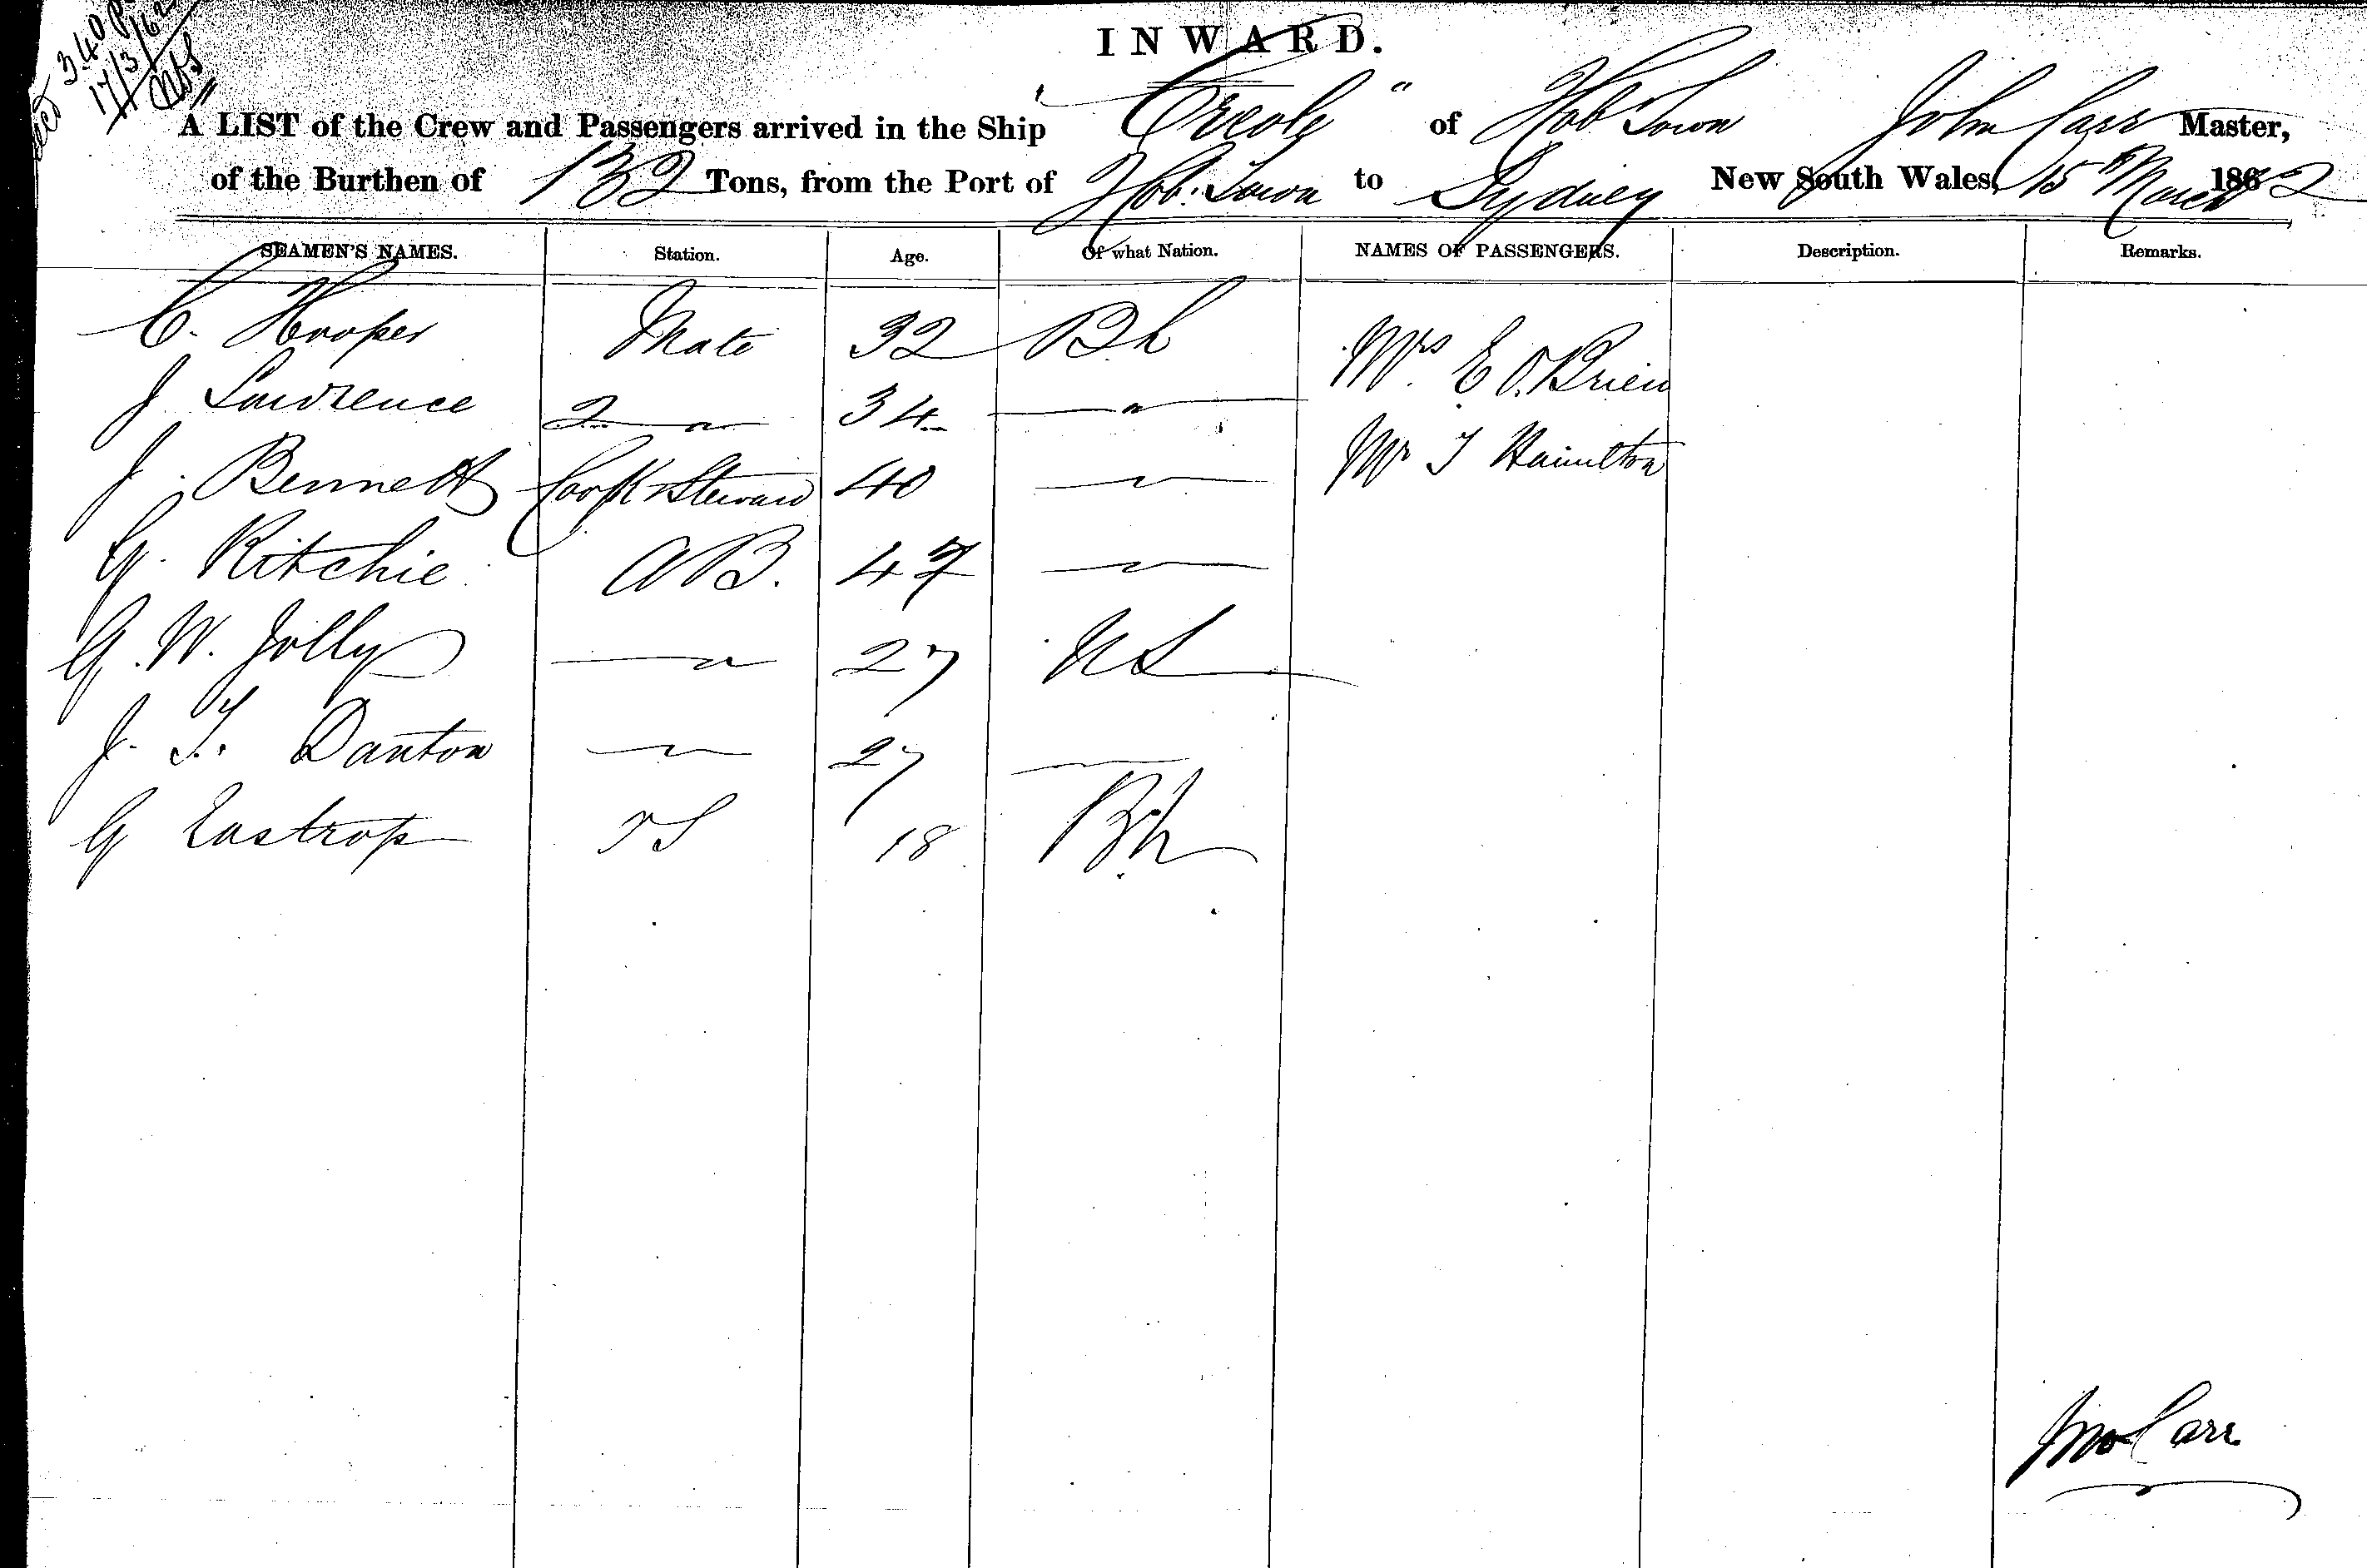 3.40 P
17/3/62
INWARD.
A LIST of the Crew and Passengers arrived in the Ship "Creole" of Hob Town John Carr Master,
of the Burthen of 132 Tons, from the Port of Hob. Town to Sydney New South Wales, 15th March 1862
SEAMEN'S NAMES. Station. Age. Of what Nation. NAMES OF PASSENGERS. Description. Remarks.
C. Hooper Mate 32 Bh Mrs E O.Brien
J Lawrence 2 " 34 "
J. Bennett Cook & Steward 40 " Mr T Hamilton
G. Ritchie AB. 47 "
G. W. Jolly " 27 US
J. T. Danton " 27 "
G Eastrop OS 18 Bh
Jno Carr